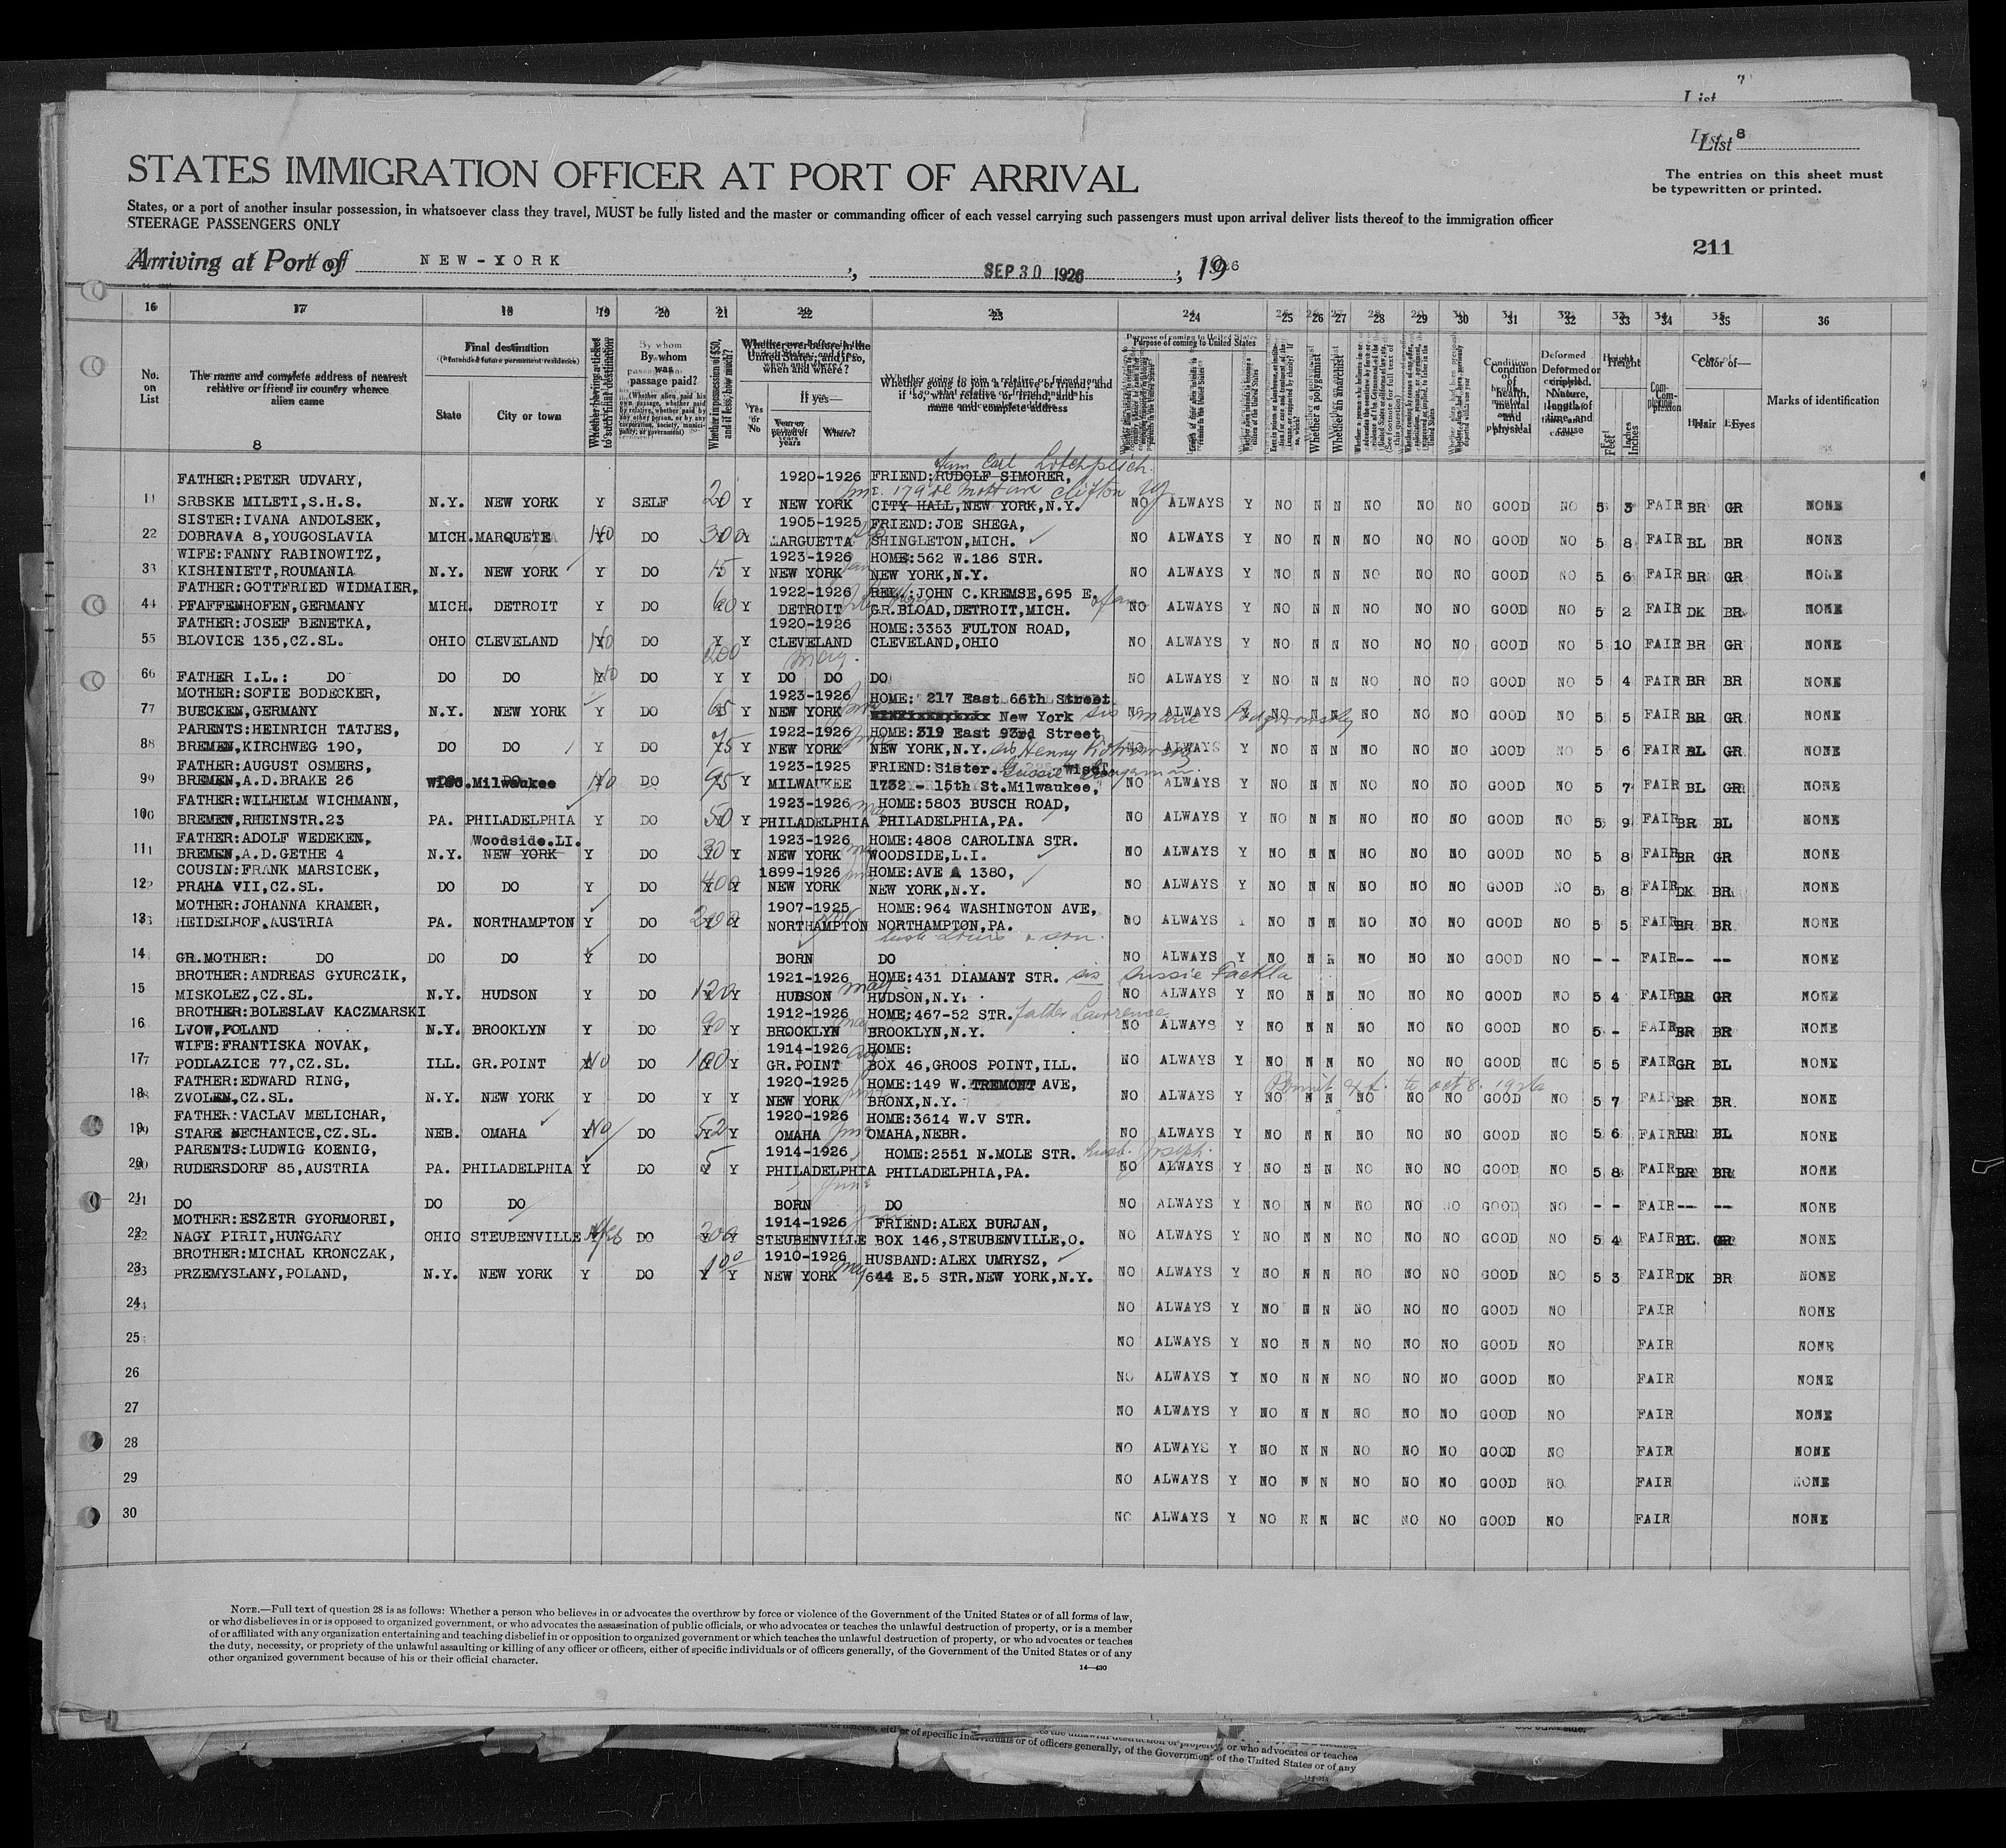 List 7
List 8
STATES IMMIGRATION OFFICER AT PORT OF ARRIVAL
The entries on this sheet must
be typewritten or printed.
States, or a port of another insular possession, in whatsoever class they travel, MUST be fully listed and the master or commanding officer of each vessel carrying such passengers must upon arrival deliver lists thereof to the immigration officer
STEERAGE PASSENGERS ONLY
211
Arriving at Port of NEW-YORK, SEP 30 1926; 1926
16 17 18 19 20 21 22 23 24 25 26 27 28 29 30 31 32 33 34 35 36
No. on List
The name and complete address of nearest relative or friend in country whence alien came
Final destination
(Intended future permanent residence)
State City or town
Whether having a ticket to such final destination
By whom was passage paid?
Whether in possession of $50, and if less, how much?
Whether ever before in the United States; and if so, when and where?
Yes or No
If yes—
Year or period of years Where?
Whether going to join a relative or friend; and if so, what relative or friend, and his name and complete address
Purpose of coming to United States
Whether a polygamist
Whether an anarchist
Condition of health, mental and physical
Deformed or crippled. Nature, length of time, and cause
Height
Feet Inches
Complexion
Color of—
Hair Eyes
Marks of identification
8
FATHER:PETER UDVARY, 1920-1926 FRIEND:RUDOLF SIMORER,
1 SRBSKE MILETI,S.H.S. N.Y. NEW YORK Y SELF 20 Y NEW YORK CITY HALL,NEW YORK,N.Y. NO ALWAYS Y NO N N NO NO NO GOOD NO 5 3 FAIR BR GR NONE
SISTER:IVANA ANDOLSEK, 1905-1925 FRIEND:JOE SHEGA,
2 DOBRAVA 8,YOUGOSLAVIA MICH. MARQUETE NO DO 300 Y MARGUETTA SHINGLETON,MICH. NO ALWAYS Y NO N N NO NO NO GOOD NO 5 8 FAIR BL BR NONE
WIFE:FANNY RABINOWITZ, 1923-1926 HOME:562 W.186 STR.
3 KISHINIETT,ROUMANIA N.Y. NEW YORK Y DO 15 Y NEW YORK NEW YORK,N.Y. NO ALWAYS Y NO N N NO NO NO GOOD NO 5 6 FAIR BR GR NONE
FATHER:GOTTFRIED WIDMAIER, 1922-1926 REL.:JOHN C.KREMSE,695 E.
4 PFAFFENHOFEN,GERMANY MICH. DETROIT Y DO 60 Y DETROIT GR.BLOAD,DETROIT,MICH. NO ALWAYS Y NO N N NO NO NO GOOD NO 5 2 FAIR DK BR NONE
FATHER:JOSEF BENETKA, 1920-1926 HOME:3353 FULTON ROAD,
5 BLOVICE 135,CZ.SL. OHIO CLEVELAND NO DO Y Y CLEVELAND CLEVELAND,OHIO NO ALWAYS Y NO N N NO NO NO GOOD NO 5 10 FAIR BR GR NONE
200 May.
6 FATHER I.L.: DO DO DO NO DO Y Y DO DO DO NO ALWAYS Y NO N N NO NO NO GOOD NO 5 4 FAIR BR BR NONE
MOTHER:SOFIE BODECKER, 1923-1926 HOME: 217 East 66th Street
7 BUECKEN,GERMANY N.Y. NEW YORK Y DO 65 Y NEW YORK New York sis Marie NO ALWAYS Y NO N N NO NO NO GOOD NO 5 5 FAIR BR GR NONE
PARENTS:HEINRICH TATJES, 1922-1926 HOME: 319 East 93rd Street
8 BREMEN,KIRCHWEG 190, DO DO Y DO 75 Y NEW YORK NEW YORK,N.Y. sis Henny NO ALWAYS Y NO N N NO NO NO GOOD NO 5 6 FAIR BL GR NONE
FATHER:AUGUST OSMERS, 1923-1925 FRIEND:Sister. Gussie
9 BREMEN,A.D.BRAKE 26 Wisc.Milwaukee NO DO 95 Y MILWAUKEE 1732 - 15th St.Milwaukee, Wisc. NO ALWAYS Y NO N N NO NO NO GOOD NO 5 7 FAIR BL GR NONE
FATHER:WILHELM WICHMANN, 1923-1926 HOME:5803 BUSCH ROAD,
10 BREMEN,RHEINSTR.23 PA. PHILADELPHIA Y DO 50 Y PHILADELPHIA PHILADELPHIA,PA. NO ALWAYS Y NO N N NO NO NO GOOD NO 5 9 FAIR BR BL NONE
FATHER:ADOLF WEDEKEN, Woodside.LI. 1923-1926 HOME:4808 CAROLINA STR.
11 BREMEN,A.D.GETHE 4 N.Y. NEW YORK Y DO 30 Y NEW YORK WOODSIDE,L.I. NO ALWAYS Y NO N N NO NO NO GOOD NO 5 8 FAIR BR GR NONE
COUSIN:FRANK MARSICEK, 1899-1926 HOME:AVE A 1380,
12 PRAHA VII,CZ.SL. DO DO Y DO 400 Y NEW YORK NEW YORK,N.Y. NO ALWAYS Y NO N N NO NO NO GOOD NO 5 8 FAIR DK BR NONE
MOTHER:JOHANNA KRAMER, 1907-1925 HOME:964 WASHINGTON AVE,
13 HEIDELHOF,AUSTRIA PA. NORTHAMPTON Y DO 200 Y NORTHAMPTON NORTHAMPTON,PA. NO ALWAYS NO N N NO NO NO GOOD NO 5 5 FAIR BR BR NONE
husb Louis & son.
14 GR.MOTHER: DO DO DO Y DO BORN DO NO ALWAYS Y NO N N NO NO NO GOOD NO -- FAIR -- -- NONE
BROTHER:ANDREAS GYURCZIK, 1921-1926 HOME:431 DIAMANT STR. sis Sussie Fackla
15 MISKOLEZ,CZ.SL. N.Y. HUDSON Y DO 120 Y HUDSON May HUDSON,N.Y. NO ALWAYS Y NO N N NO NO NO GOOD NO 5 4 FAIR BR GR NONE
BROTHER:BOLESLAV KACZMARSKI 1912-1926 HOME:467-52 STR. father Lawrence
16 LVOW,POLAND N.Y. BROOKLYN Y DO 90 Y BROOKLYN BROOKLYN,N.Y. NO ALWAYS Y NO N N NO NO NO GOOD NO 5 - FAIR BR BR NONE
WIFE:FRANTISKA NOVAK, 1914-1926 HOME:
17 PODLAZICE 77,CZ.SL. ILL. GR.POINT NO DO 100 Y GR.POINT BOX 46,GROOS POINT,ILL. NO ALWAYS Y NO N N NO NO NO GOOD NO 5 5 FAIR GR BL NONE
FATHER:EDWARD RING, 1920-1925 HOME:149 W. TREMONT AVE, Permit ext. to Oct 8. 1926
18 ZVOLEN,CZ.SL. N.Y. NEW YORK Y DO Y Y NEW YORK BRONX,N.Y. NO ALWAYS Y NO N N NO NO NO GOOD NO 5 7 FAIR BR BR NONE
FATHER:VACLAV MELICHAR, 1920-1926 HOME:3614 W.V STR.
19 STARE NECHANICE,CZ.SL. NEB. OMAHA NO DO 52 Y OMAHA June OMAHA,NEBR. NO ALWAYS Y NO N N NO NO NO GOOD NO 5 6 FAIR BR BL NONE
PARENTS:LUDWIG KOENIG, 1914-1926 HOME:2551 N.MOLE STR. husb. Joseph.
20 RUDERSDORF 85,AUSTRIA PA. PHILADELPHIA Y DO 5 Y PHILADELPHIA PHILADELPHIA,PA. NO ALWAYS Y NO N N NO NO NO GOOD NO 5 8 FAIR BR BR NONE
June
21 DO DO DO BORN DO NO ALWAYS Y NO N N NO NO NO GOOD NO -- FAIR -- -- NONE
MOTHER:ESZETR GYORMOREI, 1914-1926 FRIEND:ALEX BURJAN,
22 NAGY PIRIT,HUNGARY OHIO STEUBENVILLE DO 200 STEUBENVILLE BOX 146,STEUBENVILLE,O. NO ALWAYS Y NO N N NO NO NO GOOD NO 5 4 FAIR BL GR NONE
BROTHER:MICHAL KRONCZAK, 1910-1926 HUSBAND:ALEX UMRYSZ,
23 PRZEMYSLANY,POLAND, N.Y. NEW YORK Y DO 100 Y Y NEW YORK May 644 E.5 STR.NEW YORK,N.Y. NO ALWAYS Y NO N N NO NO NO GOOD NO 5 3 FAIR DK BR NONE
24 NO ALWAYS Y NO N N NO NO NO GOOD NO FAIR NONE
25 NO ALWAYS Y NO N N NO NO NO GOOD NO FAIR NONE
26 NO ALWAYS Y NO N N NO NO NO GOOD NO FAIR NONE
27 NO ALWAYS Y NO N N NO NO NO GOOD NO FAIR NONE
28 NO ALWAYS Y NO N N NO NO NO GOOD NO FAIR NONE
29 NO ALWAYS Y NO N N NO NO NO GOOD NO FAIR NONE
30 NO ALWAYS Y NO N N NO NO NO GOOD NO FAIR NONE
NOTE.—Full text of question 28 is as follows: Whether a person who believes in or advocates the overthrow by force or violence of the Government of the United States or of all forms of law,
or who disbelieves in or is opposed to organized government, or who advocates the assassination of public officials, or who advocates or teaches the unlawful destruction of property, or is a member
of or affiliated with any organization entertaining and teaching disbelief in or opposition to organized government or which teaches the unlawful destruction of property, or who advocates or teaches
the duty, necessity, or propriety of the unlawful assaulting or killing of any officer or officers, either of specific individuals or of officers generally, of the Government of the United States or of any
other organized government because of his or their official character.
14—430